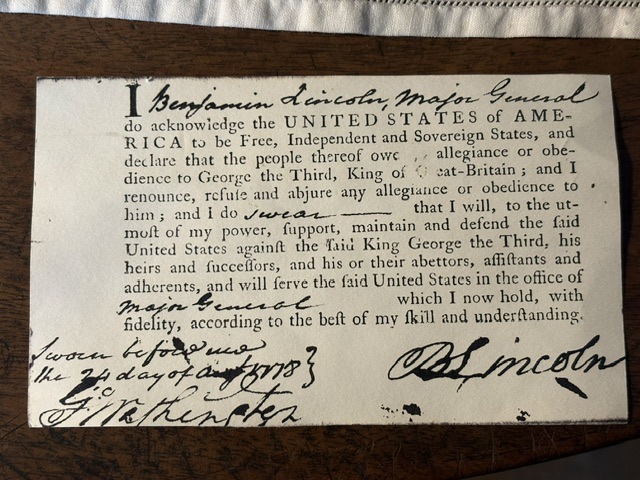 I Benjamin Lincoln, Major General
do acknowledge the UNITED STATES of AME-
RICA to be Free, Independent and Sovereign States, and
declare that the people thereof owe allegiance or obe-
dience to George the Third, King of eat-Britain; and I
renounce, refuſe and abjure any allegiance or obedience to
him; and I do swear that I will, to the ut-
moſt of my power, ſupport, maintain and defend the ſaid
United States againſt the ſaid King George the Third, his
heirs and ſucceſſors, and his or their abettors, aſſiſtants and
adherents, and will ſerve the ſaid United States in the office of
Major General which I now hold, with
fidelity, according to the beſt of my ſkill and underſtanding.
Sworn before me
the 24 day of 1778
Go Washington
B Lincoln